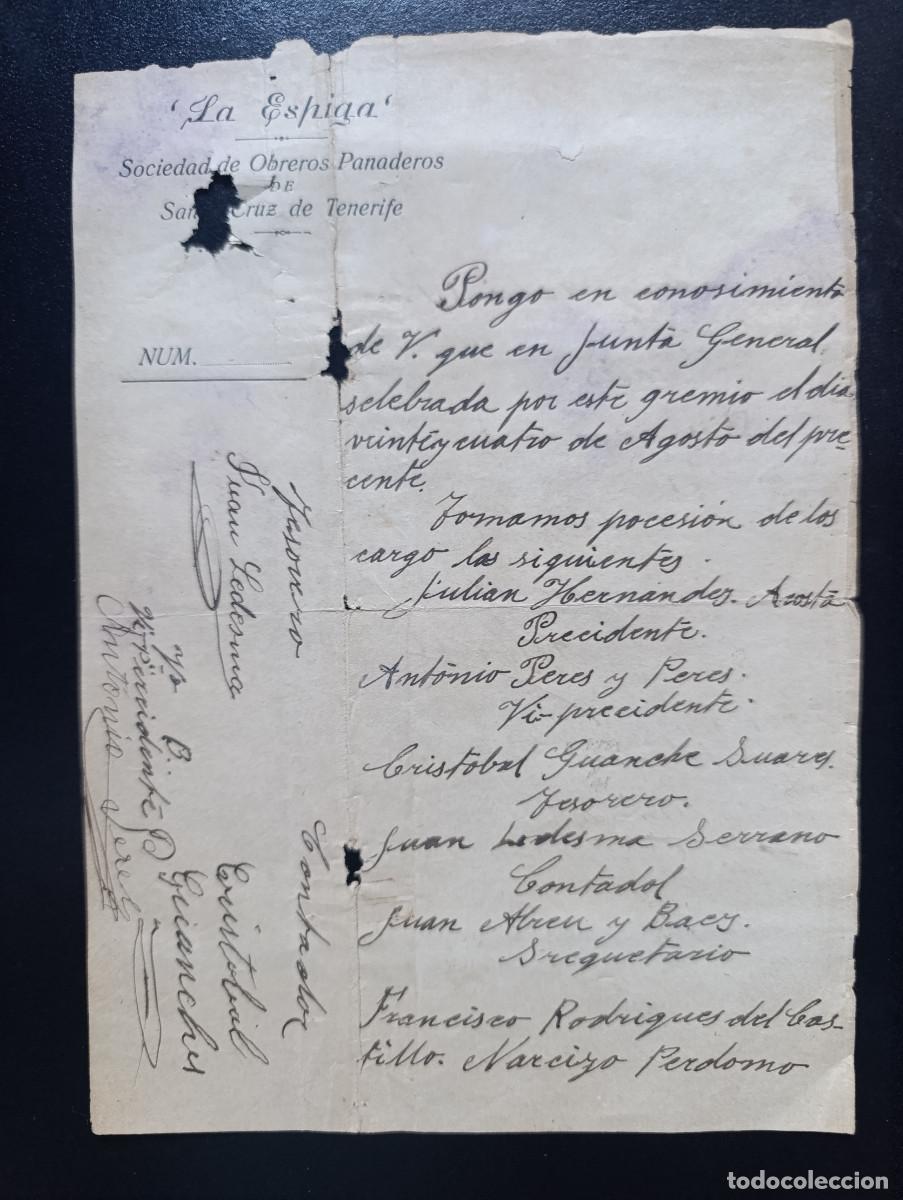 'La Espiga'
Sociedad de Obreros Panaderos
DE
Santa Cruz de Tenerife
NUM.
Pongo en conosimiento
de V. que en Junta General
selebrada por este gremio el dia
veinte y cuatro de Agosto del pre-
cente.
Tomamos pocesión de los
cargo las siguientes.
Julian Hernandez. Acosta
Precidente.
Antonio Peres y Peres.
Vi-precidente.
Cristobal Guanche Suares.
Tesorero.
Juan Ledesma Serrano
Contadol
Juan Abreu y Baez.
Srequetario
Francisco Rodrigues del Cas-
tillo. Narcizo Perdomo
Tesorero
Juan Ledesma
Contador
Cristobal
Guanches
Vº B
Antonio Perez
todocoleccion